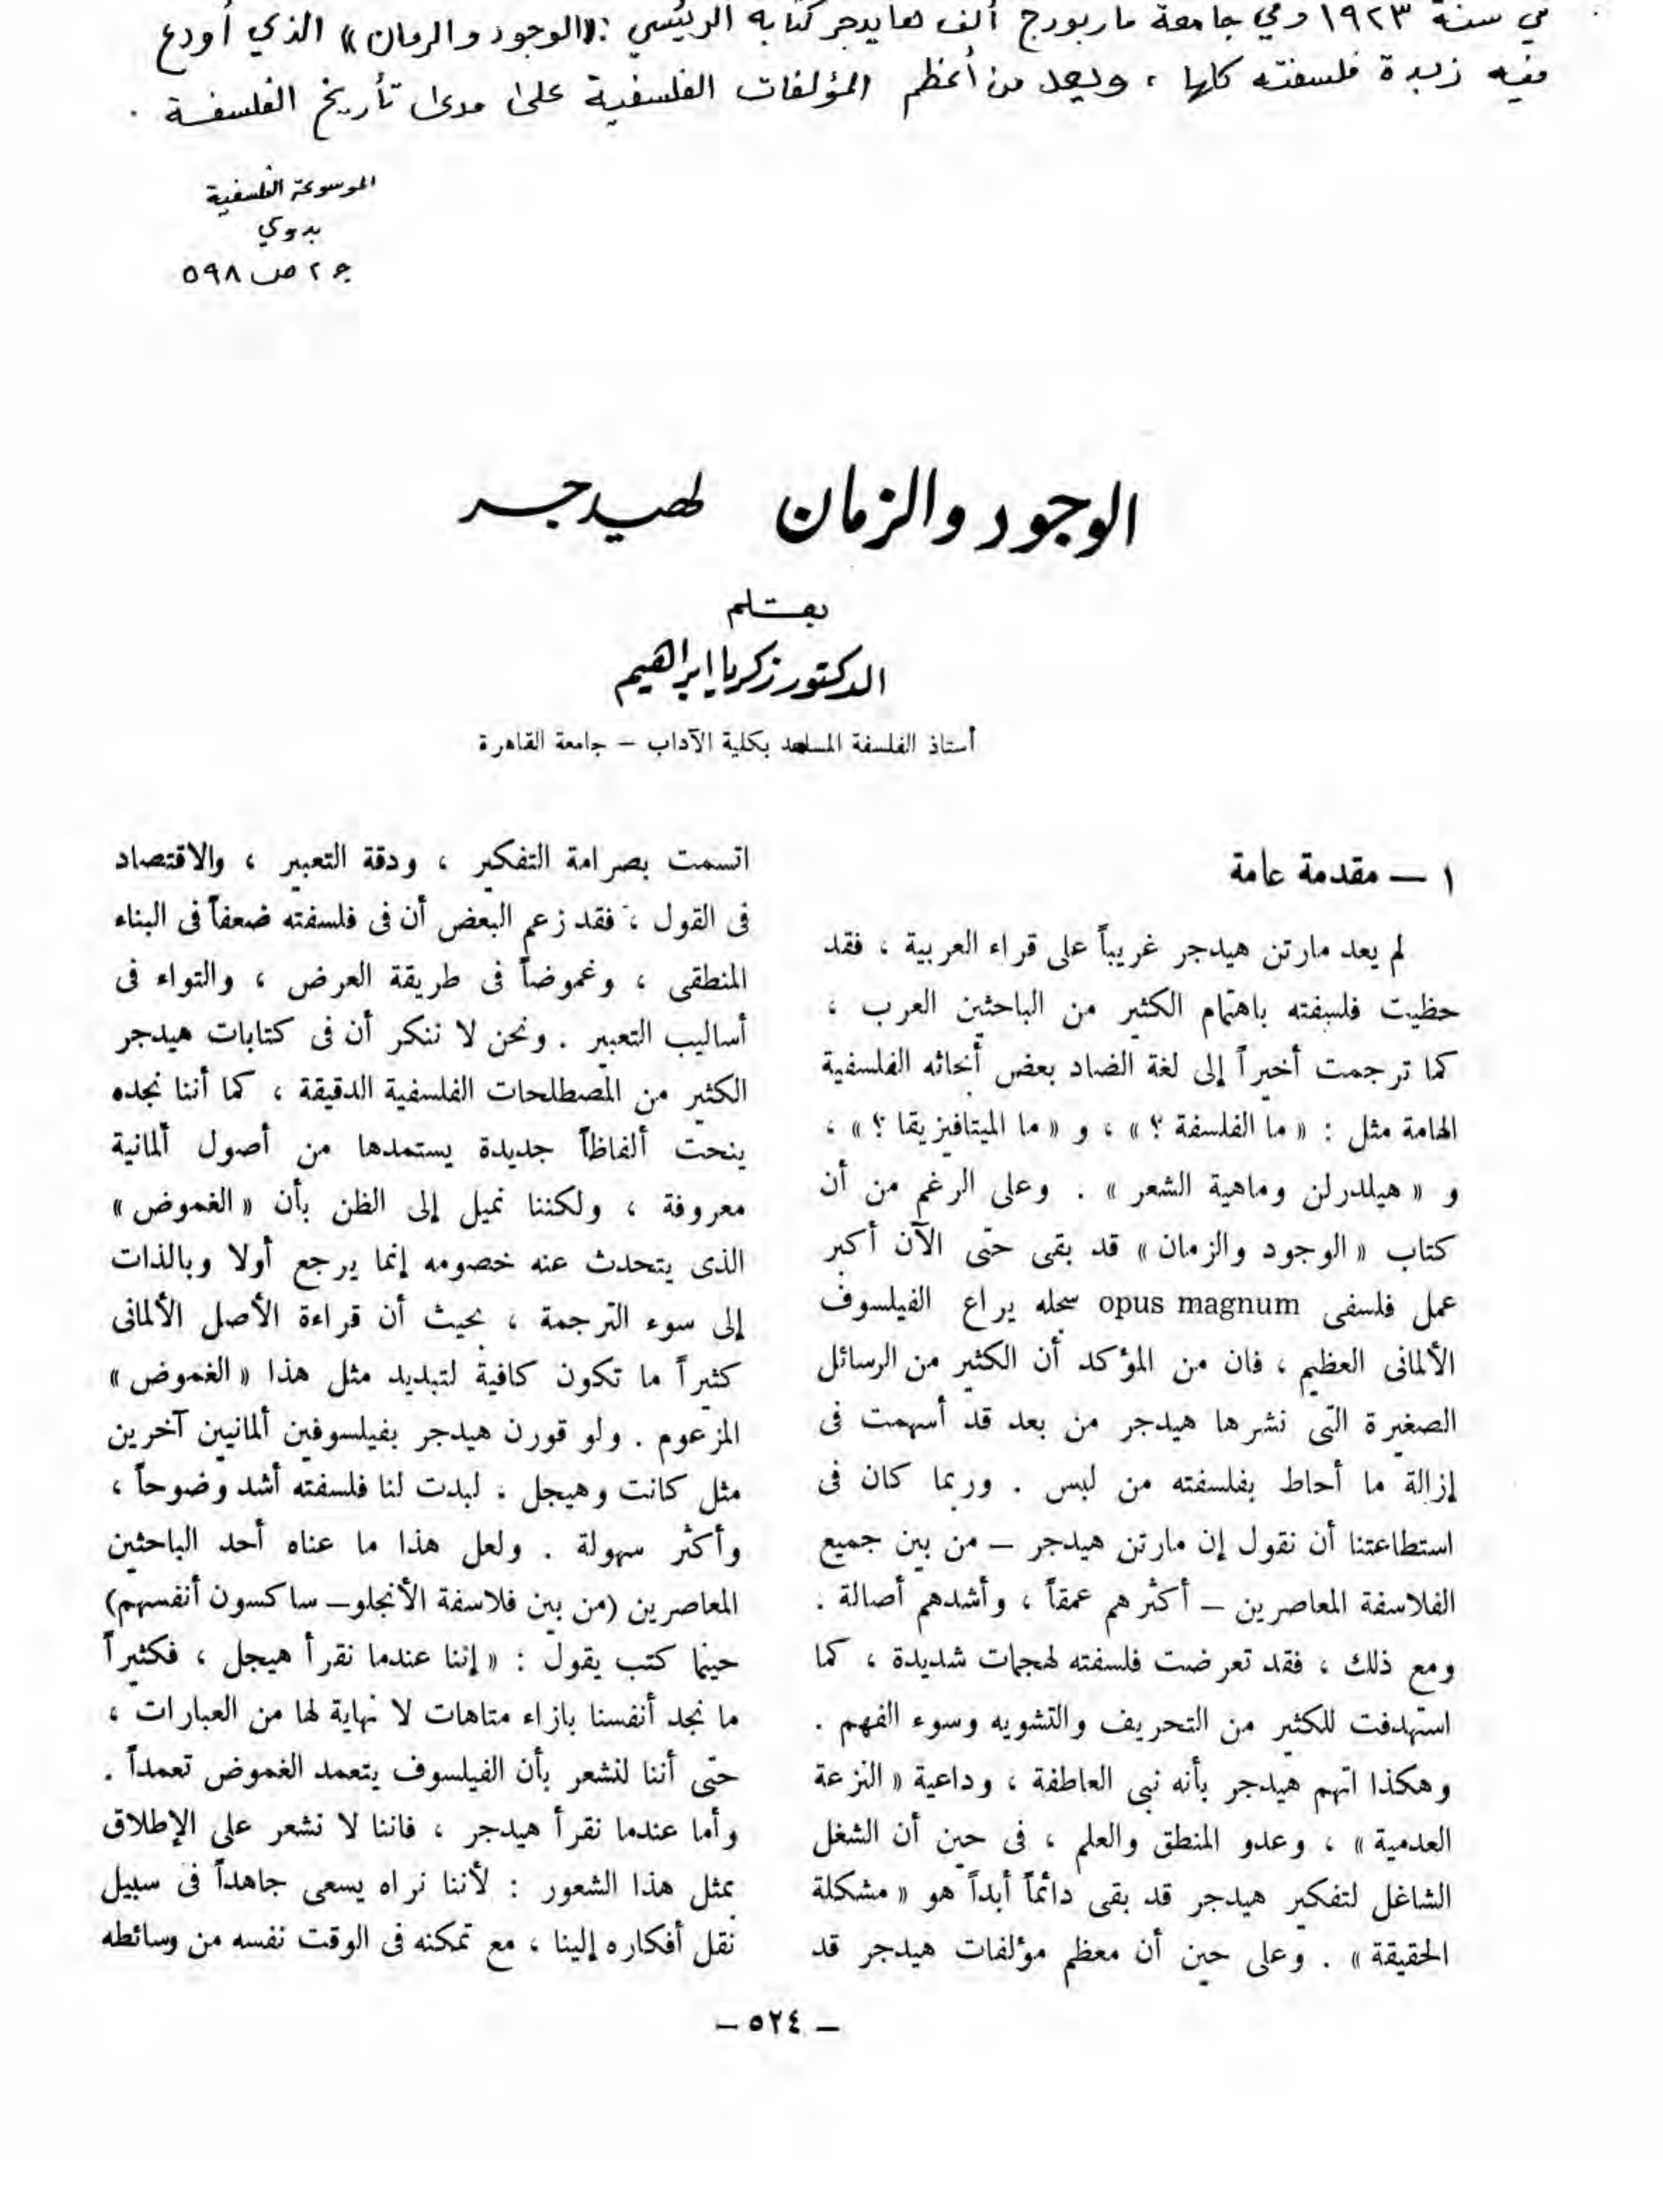 في سنة ١٩٢٣ وفي جامعة ماربورج ألف هايدجر كتابه الرئيسي : «الوجود والزمان» الذي أودع
فيه زبدة فلسفته كلها ، ويعد من أعظم المؤلفات الفلسفية على مدى تأريخ الفلسفة .
الموسوعة الفلسفية
بدوي
ج ٢ ص ٥٩٨
الوجود والزمان لهيدجر
بقلم
الدكتور زكريا إبراهيم
أستاذ الفلسفة المساعد بكلية الآداب – جامعة القاهرة
١ – مقدمة عامة
لم يعد مارتن هيدجر غريباً على قراء العربية ، فقد
حظيت فلسفته باهتمام الكثير من الباحثين العرب ،
كما ترجمت أخيراً إلى لغة الضاد بعض أبحاثه الفلسفية
الهامة مثل : « ما الفلسفة ؟ » ، و « ما الميتافيزيقا ؟ » ،
و « هيلدرلن وماهية الشعر » . وعلى الرغم من أن
كتاب « الوجود والزمان » قد بقى حتى الآن أكبر
عمل فلسفى opus magnum سجله يراع الفيلسوف
الألمانى العظيم ، فان من المؤكد أن الكثير من الرسائل
الصغيرة التى نشرها هيدجر من بعد قد أسهمت فى
إزالة ما أحاط بفلسفته من لبس . وربما كان فى
استطاعتنا أن نقول إن مارتن هيدجر – من بين جميع
الفلاسفة المعاصرين – أكثرهم عمقاً ، وأشدهم أصالة .
ومع ذلك ، فقد تعرضت فلسفته لهجمات شديدة ، كما
استهدفت للكثير من التحريف والتشويه وسوء الفهم .
وهكذا اتهم هيدجر بأنه نبى العاطفة ، وداعية « النزعة
العدمية » ، وعدو المنطق والعلم ، فى حين أن الشغل
الشاغل لتفكير هيدجر قد بقى دائماً أبداً هو « مشكلة
الحقيقة » . وعلى حين أن معظم مؤلفات هيدجر قد
اتسمت بصرامة التفكير ، ودقة التعبير ، والاقتصاد
فى القول ، فقد زعم البعض أن فى فلسفته ضعفاً فى البناء
المنطقى ، وغموضاً فى طريقة العرض ، والتواء فى
أساليب التعبير . ونحن لا ننكر أن فى كتابات هيدجر
الكثير من المصطلحات الفلسفية الدقيقة ، كما أننا نجده
ينحت ألفاظاً جديدة يستمدها من أصول ألمانية
معروفة ، ولكننا نميل إلى الظن بأن « الغموض »
الذى يتحدث عنه خصومه إنما يرجع أولا وبالذات
إلى سوء الترجمة ، بحيث أن قراءة الأصل الألمانى
كثيراً ما تكون كافية لتبديد مثل هذا « الغموض »
المزعوم . ولو قورن هيدجر بفيلسوفين ألمانيين آخرين
مثل كانت وهيجل ، لبدت لنا فلسفته أشد وضوحاً ،
وأكثر سهولة . ولعل هذا ما عناه أحد الباحثين
المعاصرين (من بين فلاسفة الأنجلو– ساكسون أنفسهم)
حينما كتب يقول : « إننا عندما نقرأ هيجل ، فكثيراً
ما نجد أنفسنا بازاء متاهات لا نهاية لها من العبارات ،
حتى أننا لنشعر بأن الفيلسوف يتعمد الغموض تعمداً .
وأما عندما نقرأ هيدجر ، فاننا لا نشعر على الإطلاق
بمثل هذا الشعور : لأننا نراه يسعى جاهداً فى سبيل
نقل أفكاره إلينا ، مع تمكنه فى الوقت نفسه من وسائطه
– ٥٢٤ –